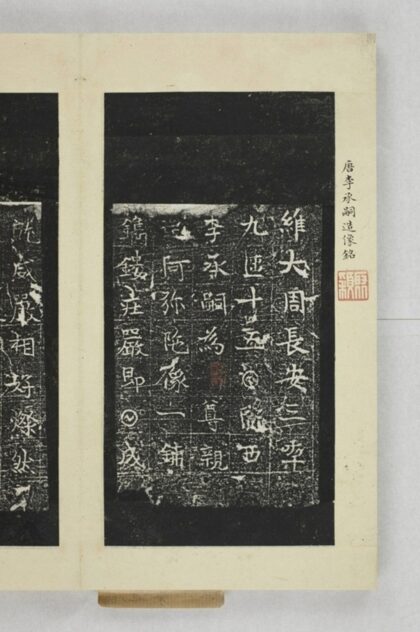 唐李承嗣造像銘
維大周長安三𠡦
九𠥱十五𡆠隴西
李承嗣為尊親
造阿弥陀像一鋪
鐫鏤莊嚴即𡆠成
就威嚴相好